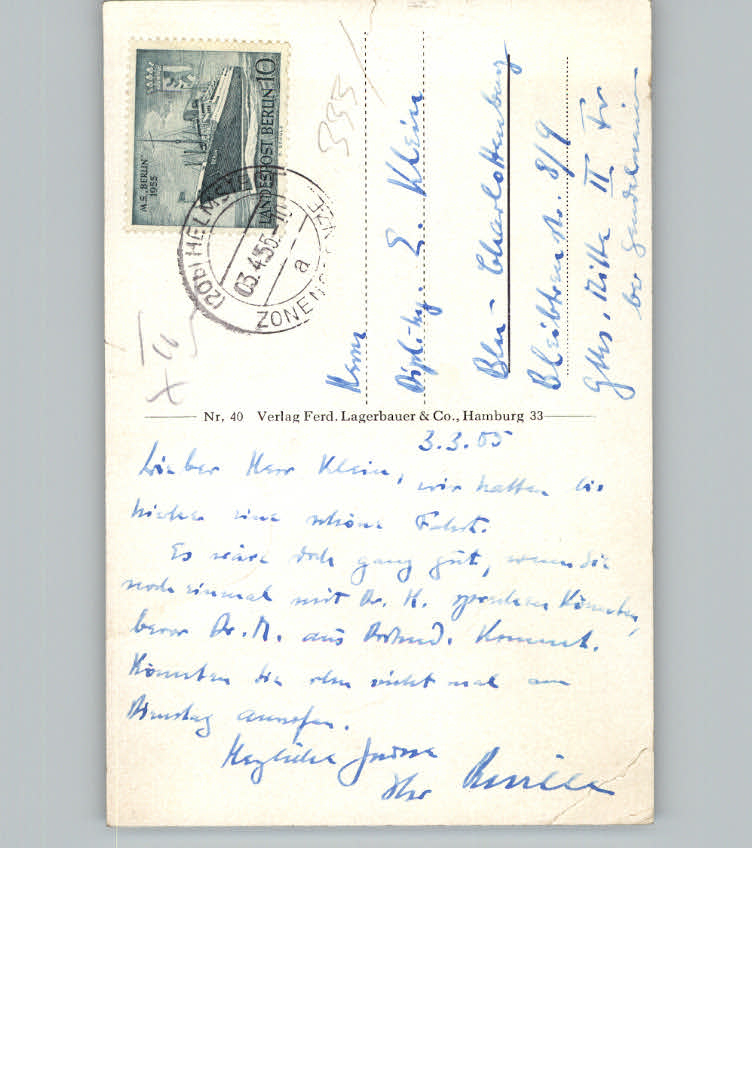 M.S. „BERLIN"
1955
LANDESPOST BERLIN 10
(20b) HELMSTE
03.4.55.-11
a
ZONENGRENZE
333
Herrn
Dipl.-Ing. E. Klein
Bln-Charlottenburg
Bleibtreustr. 8/9
Gths. Mitte II Tr
bei
Nr. 40 Verlag Ferd. Lagerbauer & Co., Hamburg 33
3.3.55
Lieber Herr Klein, wir hatten bis
hierher eine schöne Fahrt.
Es wäre doch ganz gut, wenn Sie
noch einmal mit Dr. H. sprechen könnten,
bevor Dr. M. aus Dortmd. kommt.
Könnten Sie ihn nicht mal am
Dienstag anrufen.
Herzliche Grüsse
Ihr